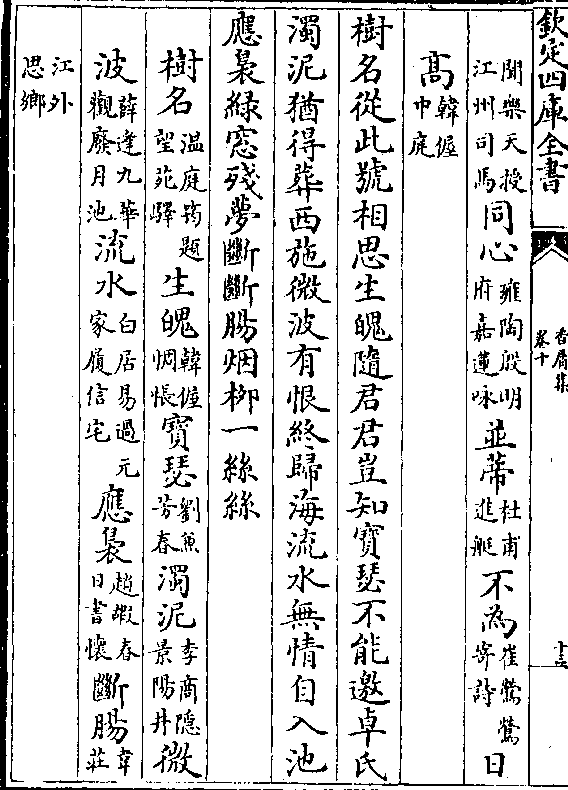 欽定四庫全書
香屑集
卷十
十三
聞樂天授江州司馬同心雍陶殷明府嘉蓮咏並蒂杜甫進艇不為崔鶯鶯寄詩日
高韓偓中庭
樹名從此號相思生魄隨君君豈知寶瑟不能邀卓氏
濁泥猶得葬西施微波有恨終歸海流水無情自入池
應裊綠窓殘夢斷斷腸烟栁一絲絲
樹名温庭筠題望苑驛生魄韓偓惆悵寶瑟劉兼芳春濁泥李商隱景陽井微
波薛逢九華觀廢月池流水白居易過元家履信宅應裊趙嘏春日書懷斷腸韋莊
江外思鄉